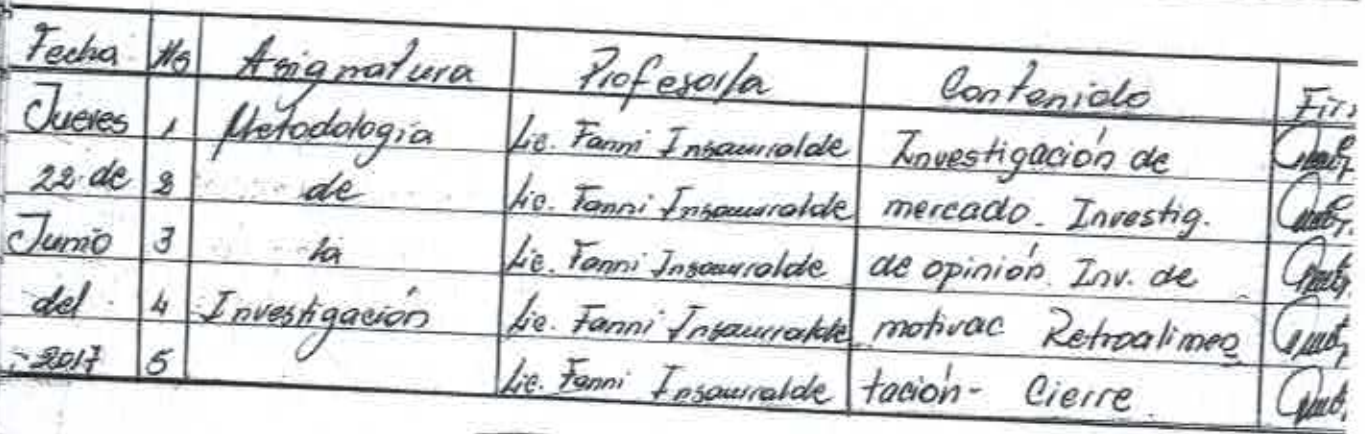 Fecha Hs Asignatura Profesor/a Contenido Fir
Jueves 1 Metodología Lic. Fanni Insaurralde Investigación de
22 de 2 de Lic. Fanni Insaurralde mercado. Investig.
Junio 3 la Lic. Fanni Insaurralde de opinión. Inv. de
del 4 Investigación Lic. Fanni Insaurralde motivac Retroalimen
2017 5 Lic. Fanni Insaurralde tación - Cierre.